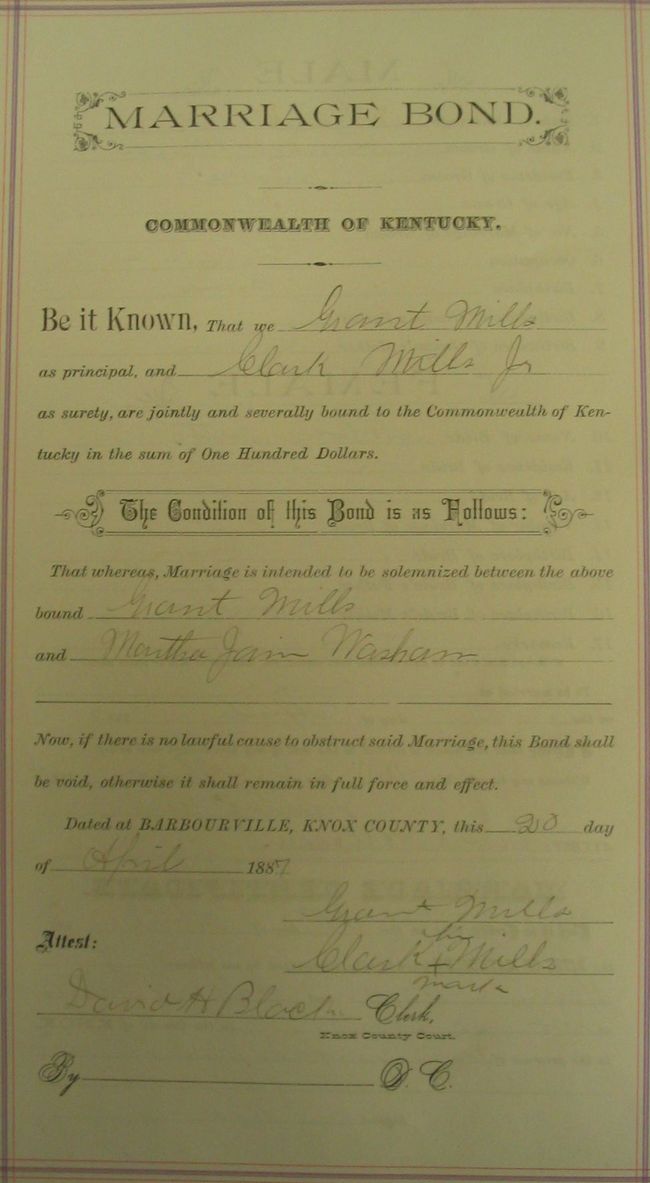 MARRIAGE BOND.
COMMONWEALTH OF KENTUCKY.
Be it Known, That we Grant Mills
as principal, and Clark Mills Jr
as surety, are jointly and severally bound to the Commonwealth of Ken-
tucky in the sum of One Hundred Dollars.
The Condition of this Bond is as Follows:
That whereas, Marriage is intended to be solemnized between the above
bound Grant Mills
and Martha Jain Washam
Now, if there is no lawful cause to obstruct said Marriage, this Bond shall
be void, otherwise it shall remain in full force and effect.
Dated at BARBOURVILLE, KNOX COUNTY, this 20 day
of April 1887
Grant Mills
Attest:
his
Clark + Mills
mark
David H Black Clerk,
Knox County Court.
By D. C.